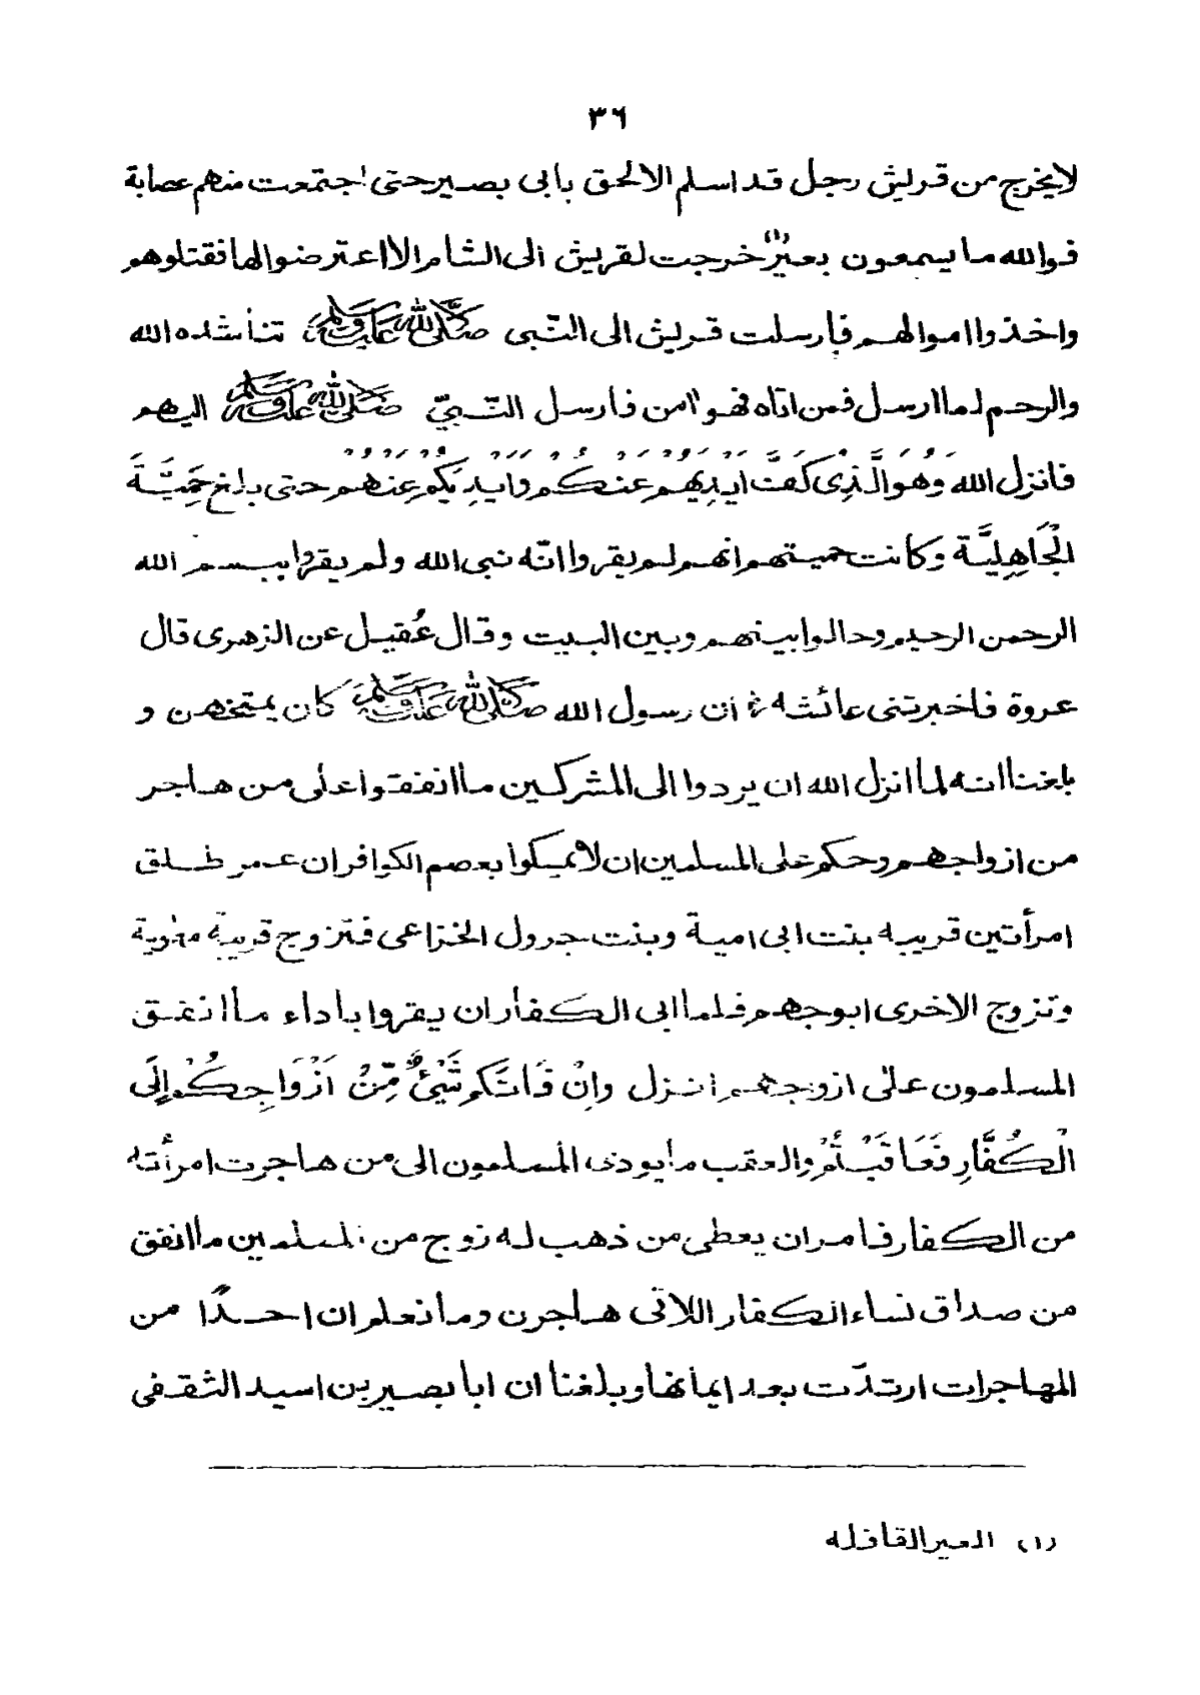 ٣٦
لا يخرج من قريش رجل قد اسلم الا لحق بابى بصير حتى اجتمعت منهم عصابة
فوالله ما يسمعون بعيرٍ(١) خرجت لقريش الى الشام الا اعترضوا لها فقتلوهم
واخذوا اموالهم فأرسلت قريش الى النّبى صلى الله عليه وسلم تناشده الله
والرحم لما ارسل فمن اتاه فهو آمن فارسل النّبيّ صلى الله عليه وسلم اليهم
فانزل الله وَهُوَ الَّذِى كَفَّ اَيْدِيَهُمْ عَنْكُمْ وَاَيْدِيَكُمْ عَنْهُمْ حتى بلغ حَمِيَّةَ
الْجَاهِلِيَّةِ وكانت حميتهم انهم لم يقروا انّه نبى الله ولم يقروا ببسم الله
الرحمن الرحيم وحالوا بينهم وبين البيت وقال عُقيل عن الزهرى قال
عروة فاخبرتنى عائشة أن رسول الله صلى الله عليه وسلم كان يمتحنهن و
بلغنا انه لما انزل الله ان يردوا الى المشركين ما انفقوا على من هاجر
من ازواجهم وحكم على المسلمين ان لا يمسكوا بعصم الكوافر ان عمر طلق
امرأتين قريبه بنت ابى امية وبنت جرول الخزاعى فتزوج قريبة معٰوية
وتزوج الاخرى ابوجهم فلما ابى الكفار ان يقروا باداء ما انفق
المسلمون على ازوجهم انزل وَاِنْ فَاتَكُمْ شَيْئٌ مِّنْ اَزْوَاجِكُمْ اِلَى
الْكُفَّارِ فَعَاقَبْتُمْ والعقب ما يودى المسلمون الى من هاجرت امرأته
من الكفار فامر ان يعطى من ذهب له زوج من المسلمين ما انفق
من صداق نساء الكفار اللاتى هاجرن وما نعلم ان احدًا من
المهاجرات ارتدّت بعد ايمانها وبلغنا ان ابا بصير بن اسيد الثقفى
(١) العير القافله